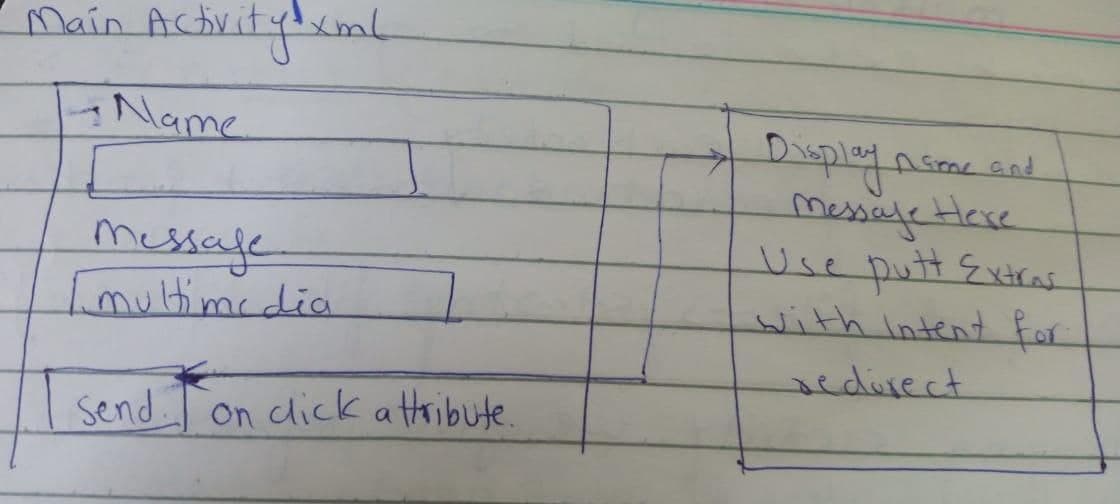 Main Activity'xml
Name
Message
multimedia
send. on click attribute.
Display name and
Message Here
Use putt Extras
with Intent for
redirect